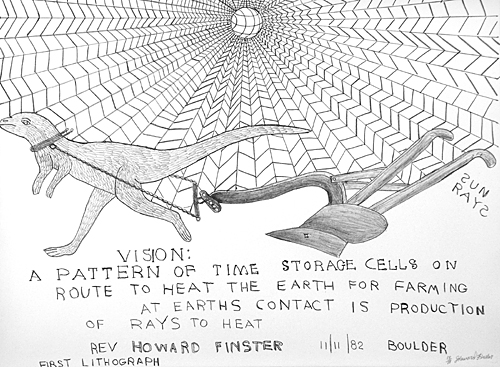 SUN
RAYS
VISION:
A PATTERN OF TIME STORAGE CELLS ON
ROUTE TO HEAT THE EARTH FOR FARMING
AT EARTHS CONTACT IS PRODUCTION
OF RAYS TO HEAT
REV HOWARD FINSTER 11/11/82 BOULDER
FIRST LITHOGRAPH
Howard Finster